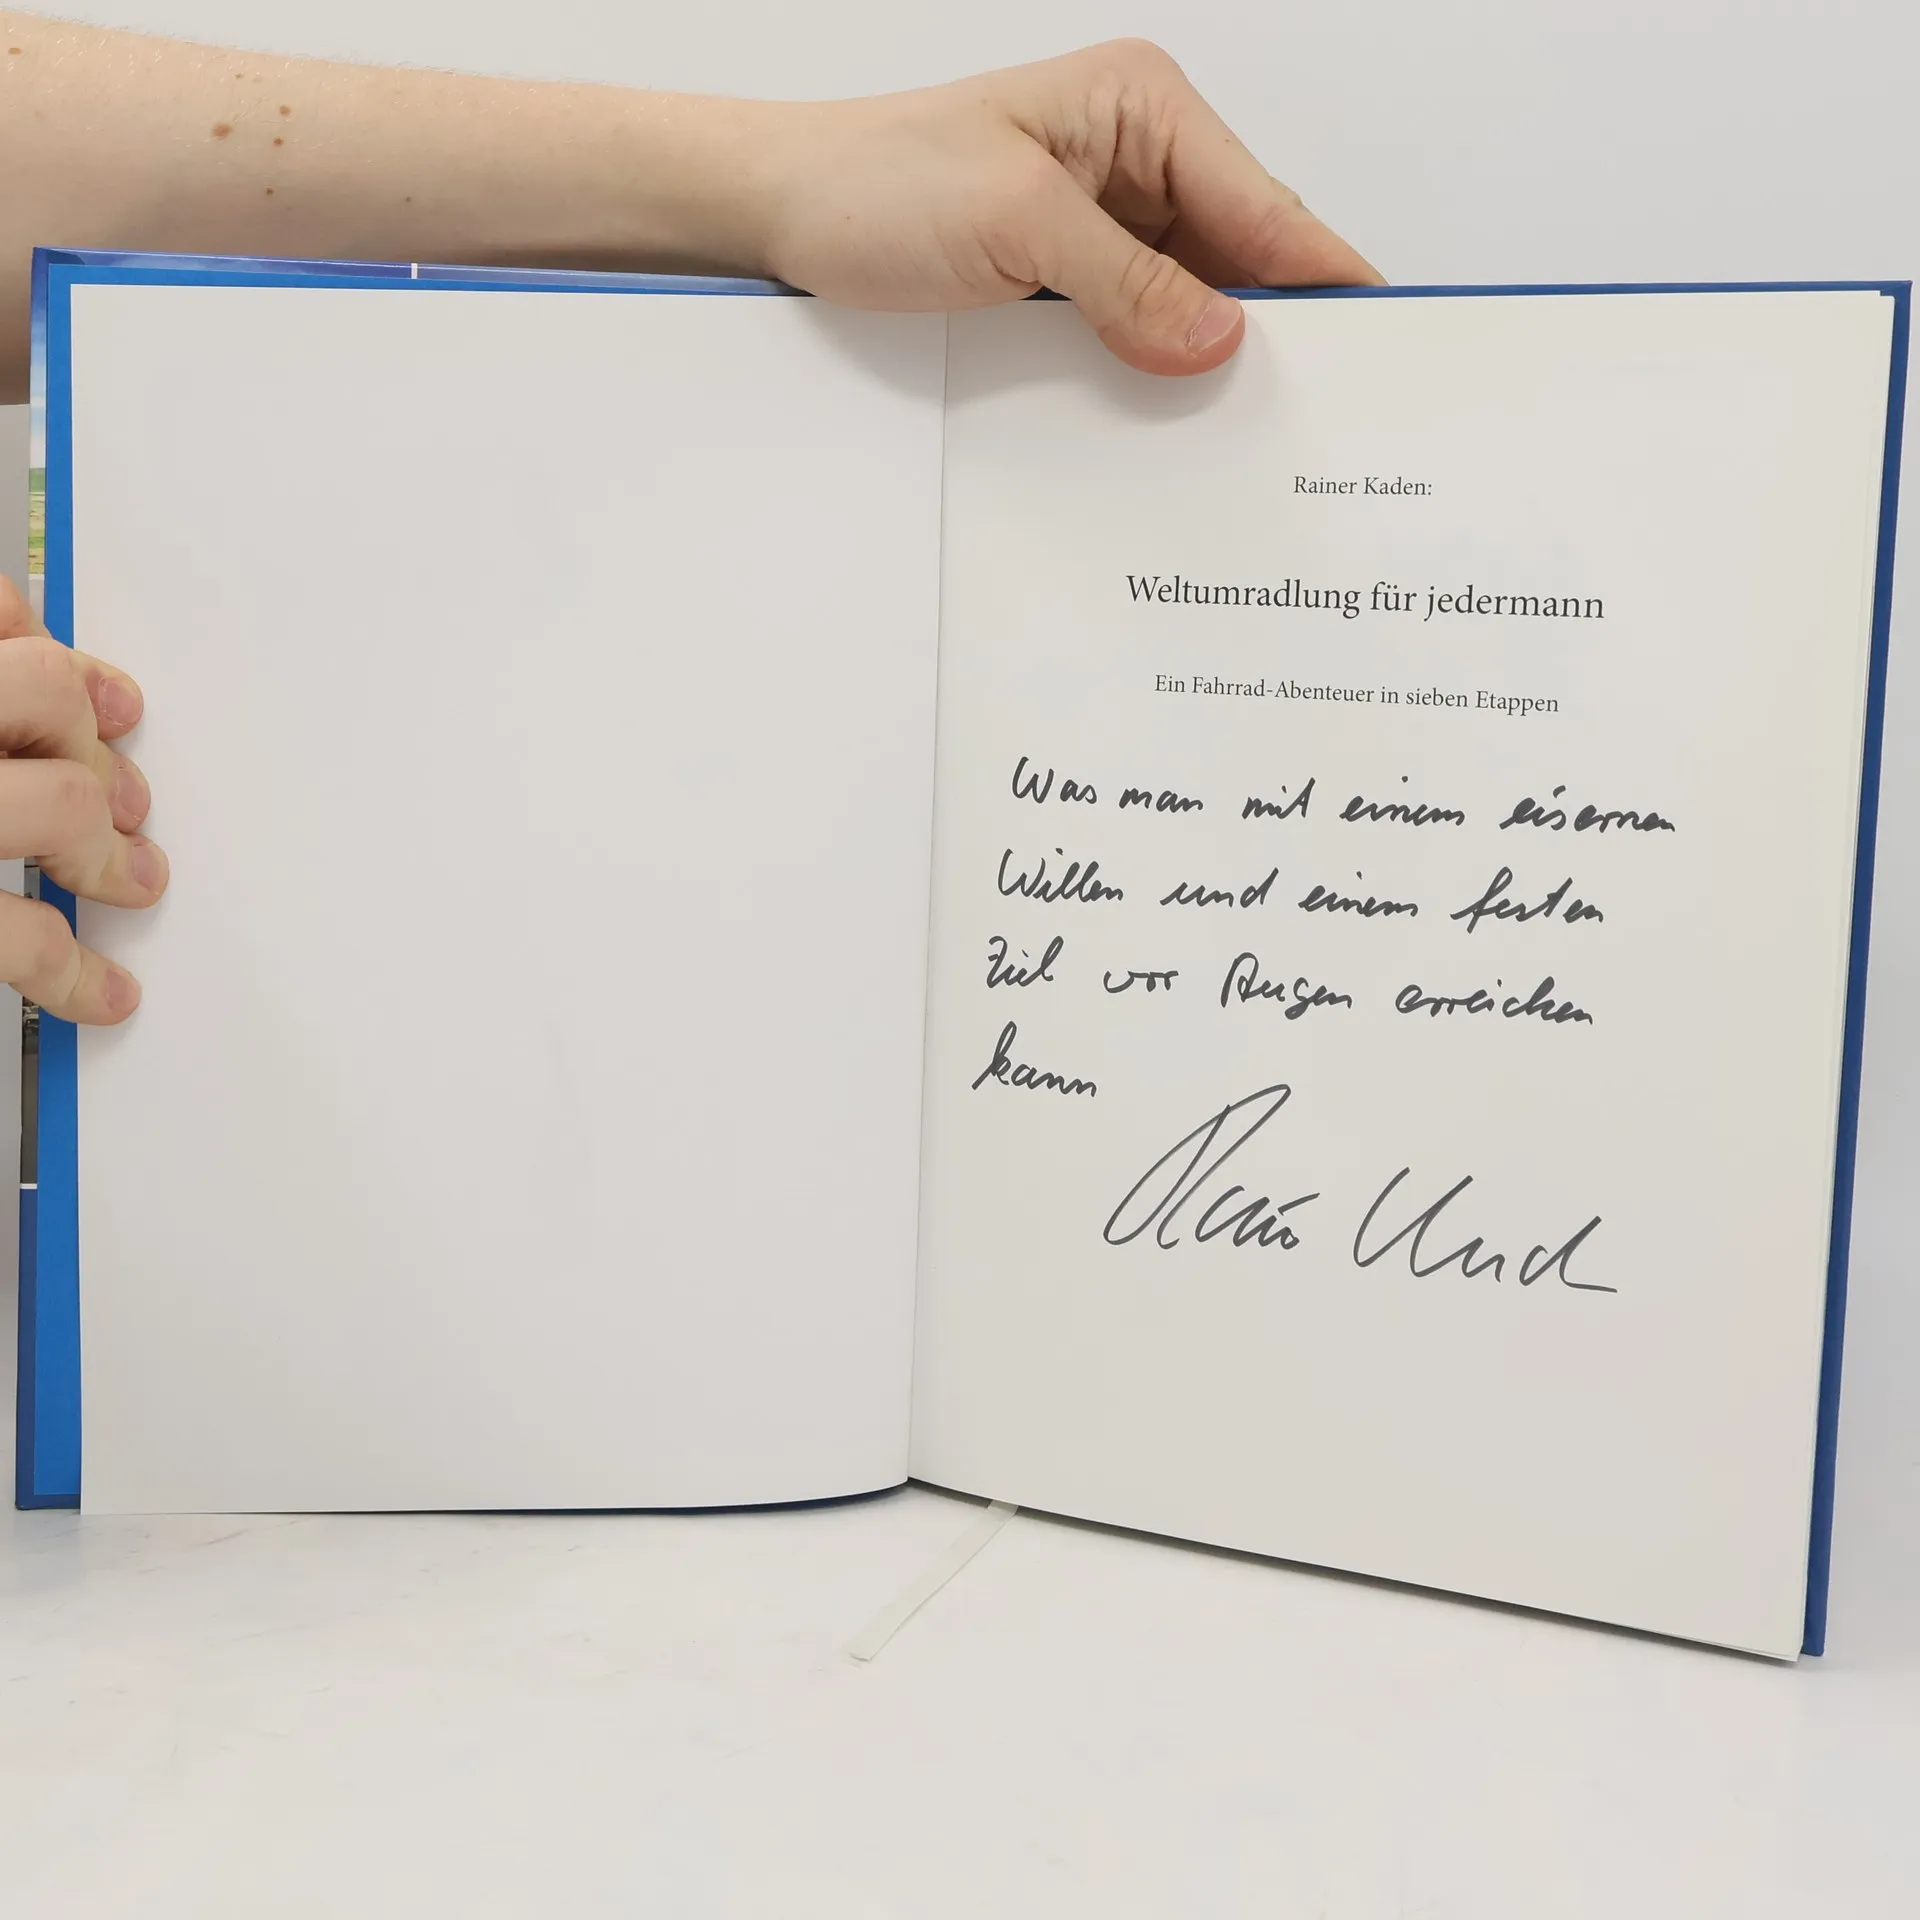 Rainer Kaden:
Weltumradlung für jedermann
Ein Fahrrad-Abenteuer in sieben Etappen
Was man mit einem eisernen
Willen und einem festen
Ziel vor Augen erreichen
kann